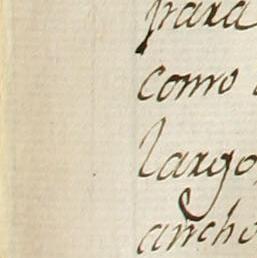 para
como
largo
ancho